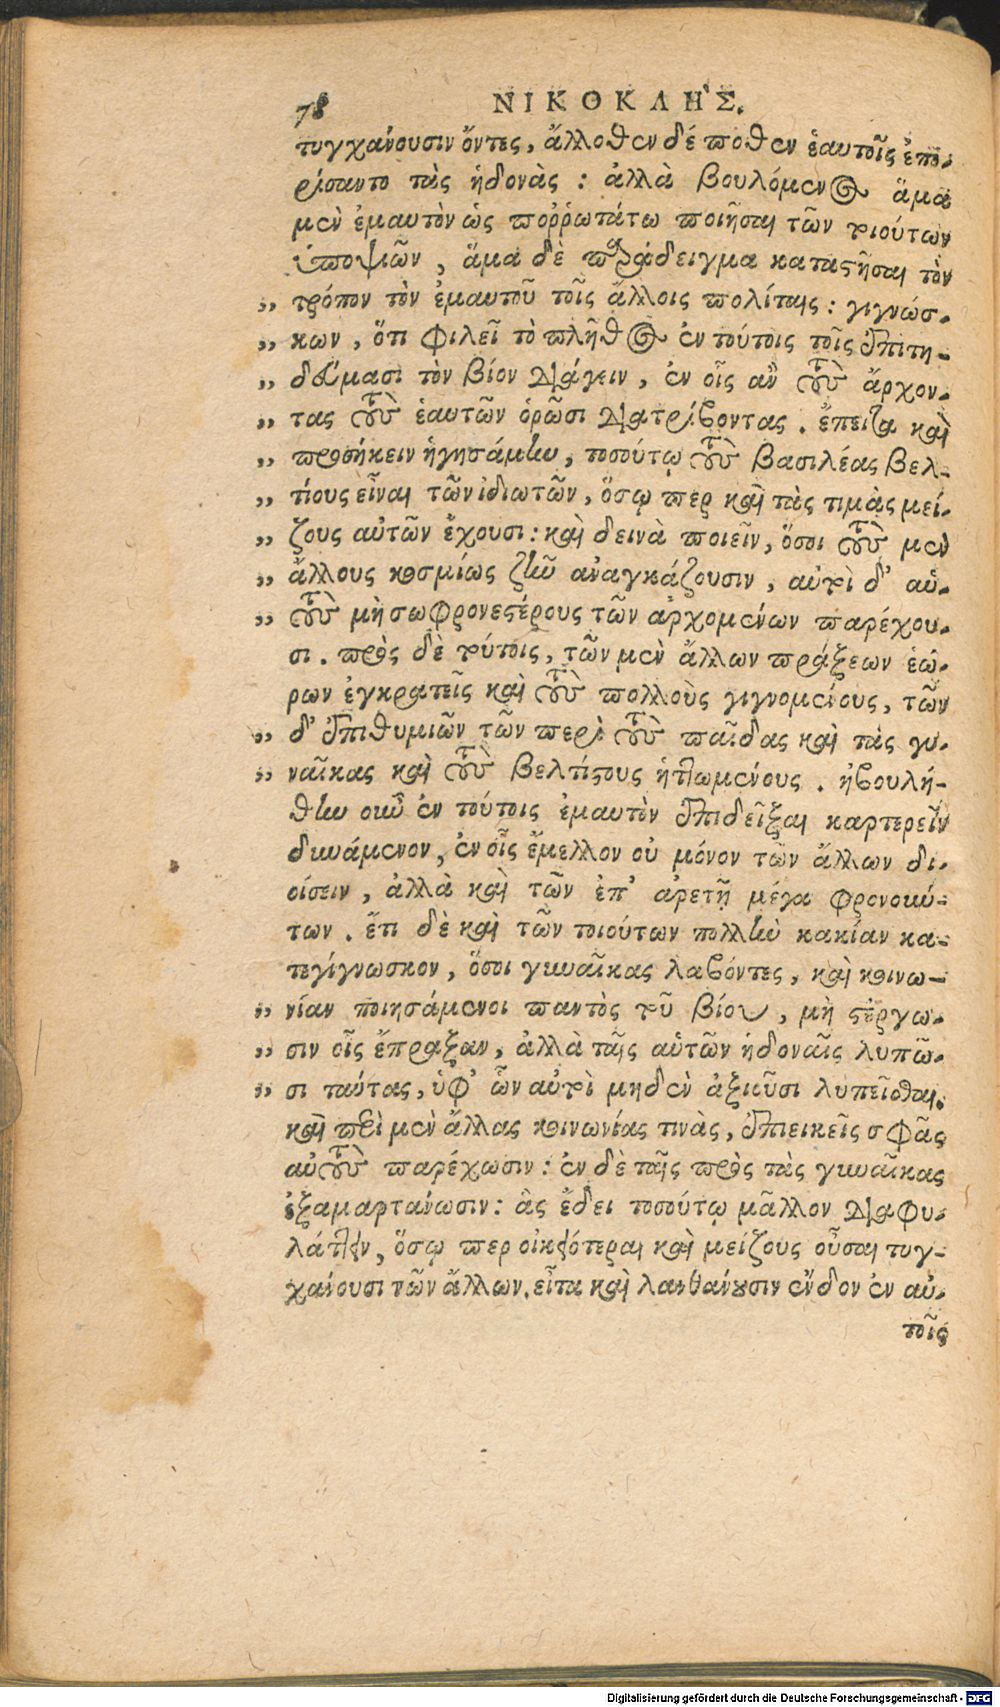 78 ΝΙΚΟΚΛΗΣ.
τυγχάνουσιν ὄντες, ἄλλοθεν δέ ποθεν ἑαυτοῖς ἐπο-
ρίσαντο τὰς ἡδονὰς : ἀλλὰ βουλόμενος ἅμα
μὲν ἐμαυτὸν ὡς ποῤῥωτάτω ποιῆσαι τῶν τοιούτων
ὑποψιῶν, ἅμα δὲ παράδειγμα καταστῆσαι τὸν
„ τρόπον τὸν ἐμαυτοῦ τοῖς ἄλλοις πολίταις : γιγνώσ-
„ κων, ὅτι φιλεῖ τὸ πλῆθος ἐν τούτοις τοῖς ἐπιτη-
„ δεύμασι τὸν βίον διάγειν, ἐν οἷς ἂν τοὺς ἄρχον-
„ τας τοὺς ἑαυτῶν ὁρῶσι διατρίβοντας. ἔπειτα καὶ
„ προσήκειν ἡγησάμην, τοσούτῳ τοὺς βασιλέας βελ-
„ τίους εἶναι τῶν ἰδιωτῶν, ὅσῳ περ καὶ τὰς τιμὰς μεί-
„ ζους αὐτῶν ἔχουσι : καὶ δεινὰ ποιεῖν, ὅσοι τοὺς μὲν
„ ἄλλους κοσμίως ζῆν ἀναγκάζουσιν, αὐτοὶ δ' αὑ-
„ τοὺς μὴ σωφρονεστέρους τῶν ἀρχομένων παρέχου-
σι. πρὸς δὲ τούτοις, τῶν μὲν ἄλλων πράξεων ἑώ-
ρων ἐγκρατεῖς καὶ τοὺς πολλοὺς γιγνομένους, τῶν
„ δ' ἐπιθυμιῶν τῶν περὶ τοὺς παῖδας καὶ τὰς γυ-
„ ναῖκας καὶ τοὺς βελτίστους ἡττωμένους. ἠβουλή-
θην οὖν ἐν τούτοις ἐμαυτὸν ἐπιδεῖξαι καρτερεῖν
δυνάμενον, ἐν οἷς ἔμελλον οὐ μόνον τῶν ἄλλων δι-
οίσειν, ἀλλὰ καὶ τῶν ἐπ' ἀρετῇ μέγα φρονούν-
των. ἔτι δὲ καὶ τῶν τοιούτων πολλὴν κακίαν κα-
τεγίγνωσκον, ὅσοι γυναῖκας λαβόντες, καὶ κοινω-
„ νίαν ποιησάμενοι παντὸς τοῦ βίου, μὴ στέργω-
„ σιν οἷς ἔπραξαν, ἀλλὰ ταῖς αὑτῶν ἡδοναῖς λυπῶ-
„ σι ταύτας, ὑφ' ὧν αὐτοὶ μηδὲν ἀξιοῦσι λυπεῖσθαι.
καὶ περὶ μὲν ἄλλας κοινωνίας τινὰς, ἐπιεικεῖς σφᾶς
αὐτοὺς παρέχωσιν : ἐν δὲ ταῖς πρὸς τὰς γυναῖκας
ἐξαμαρτάνωσιν : ἃς ἔδει τοσούτῳ μᾶλλον διαφυ-
λάττειν, ὅσῳ περ οἰκειότεραι καὶ μείζους οὖσαι τυγ-
χάνουσι τῶν ἄλλων. εἶτα καὶ λανθάνουσιν ἔνδον ἐν αὐ-
τοῖς
Digitalisierung gefördert durch die Deutsche Forschungsgemeinschaft - DFG